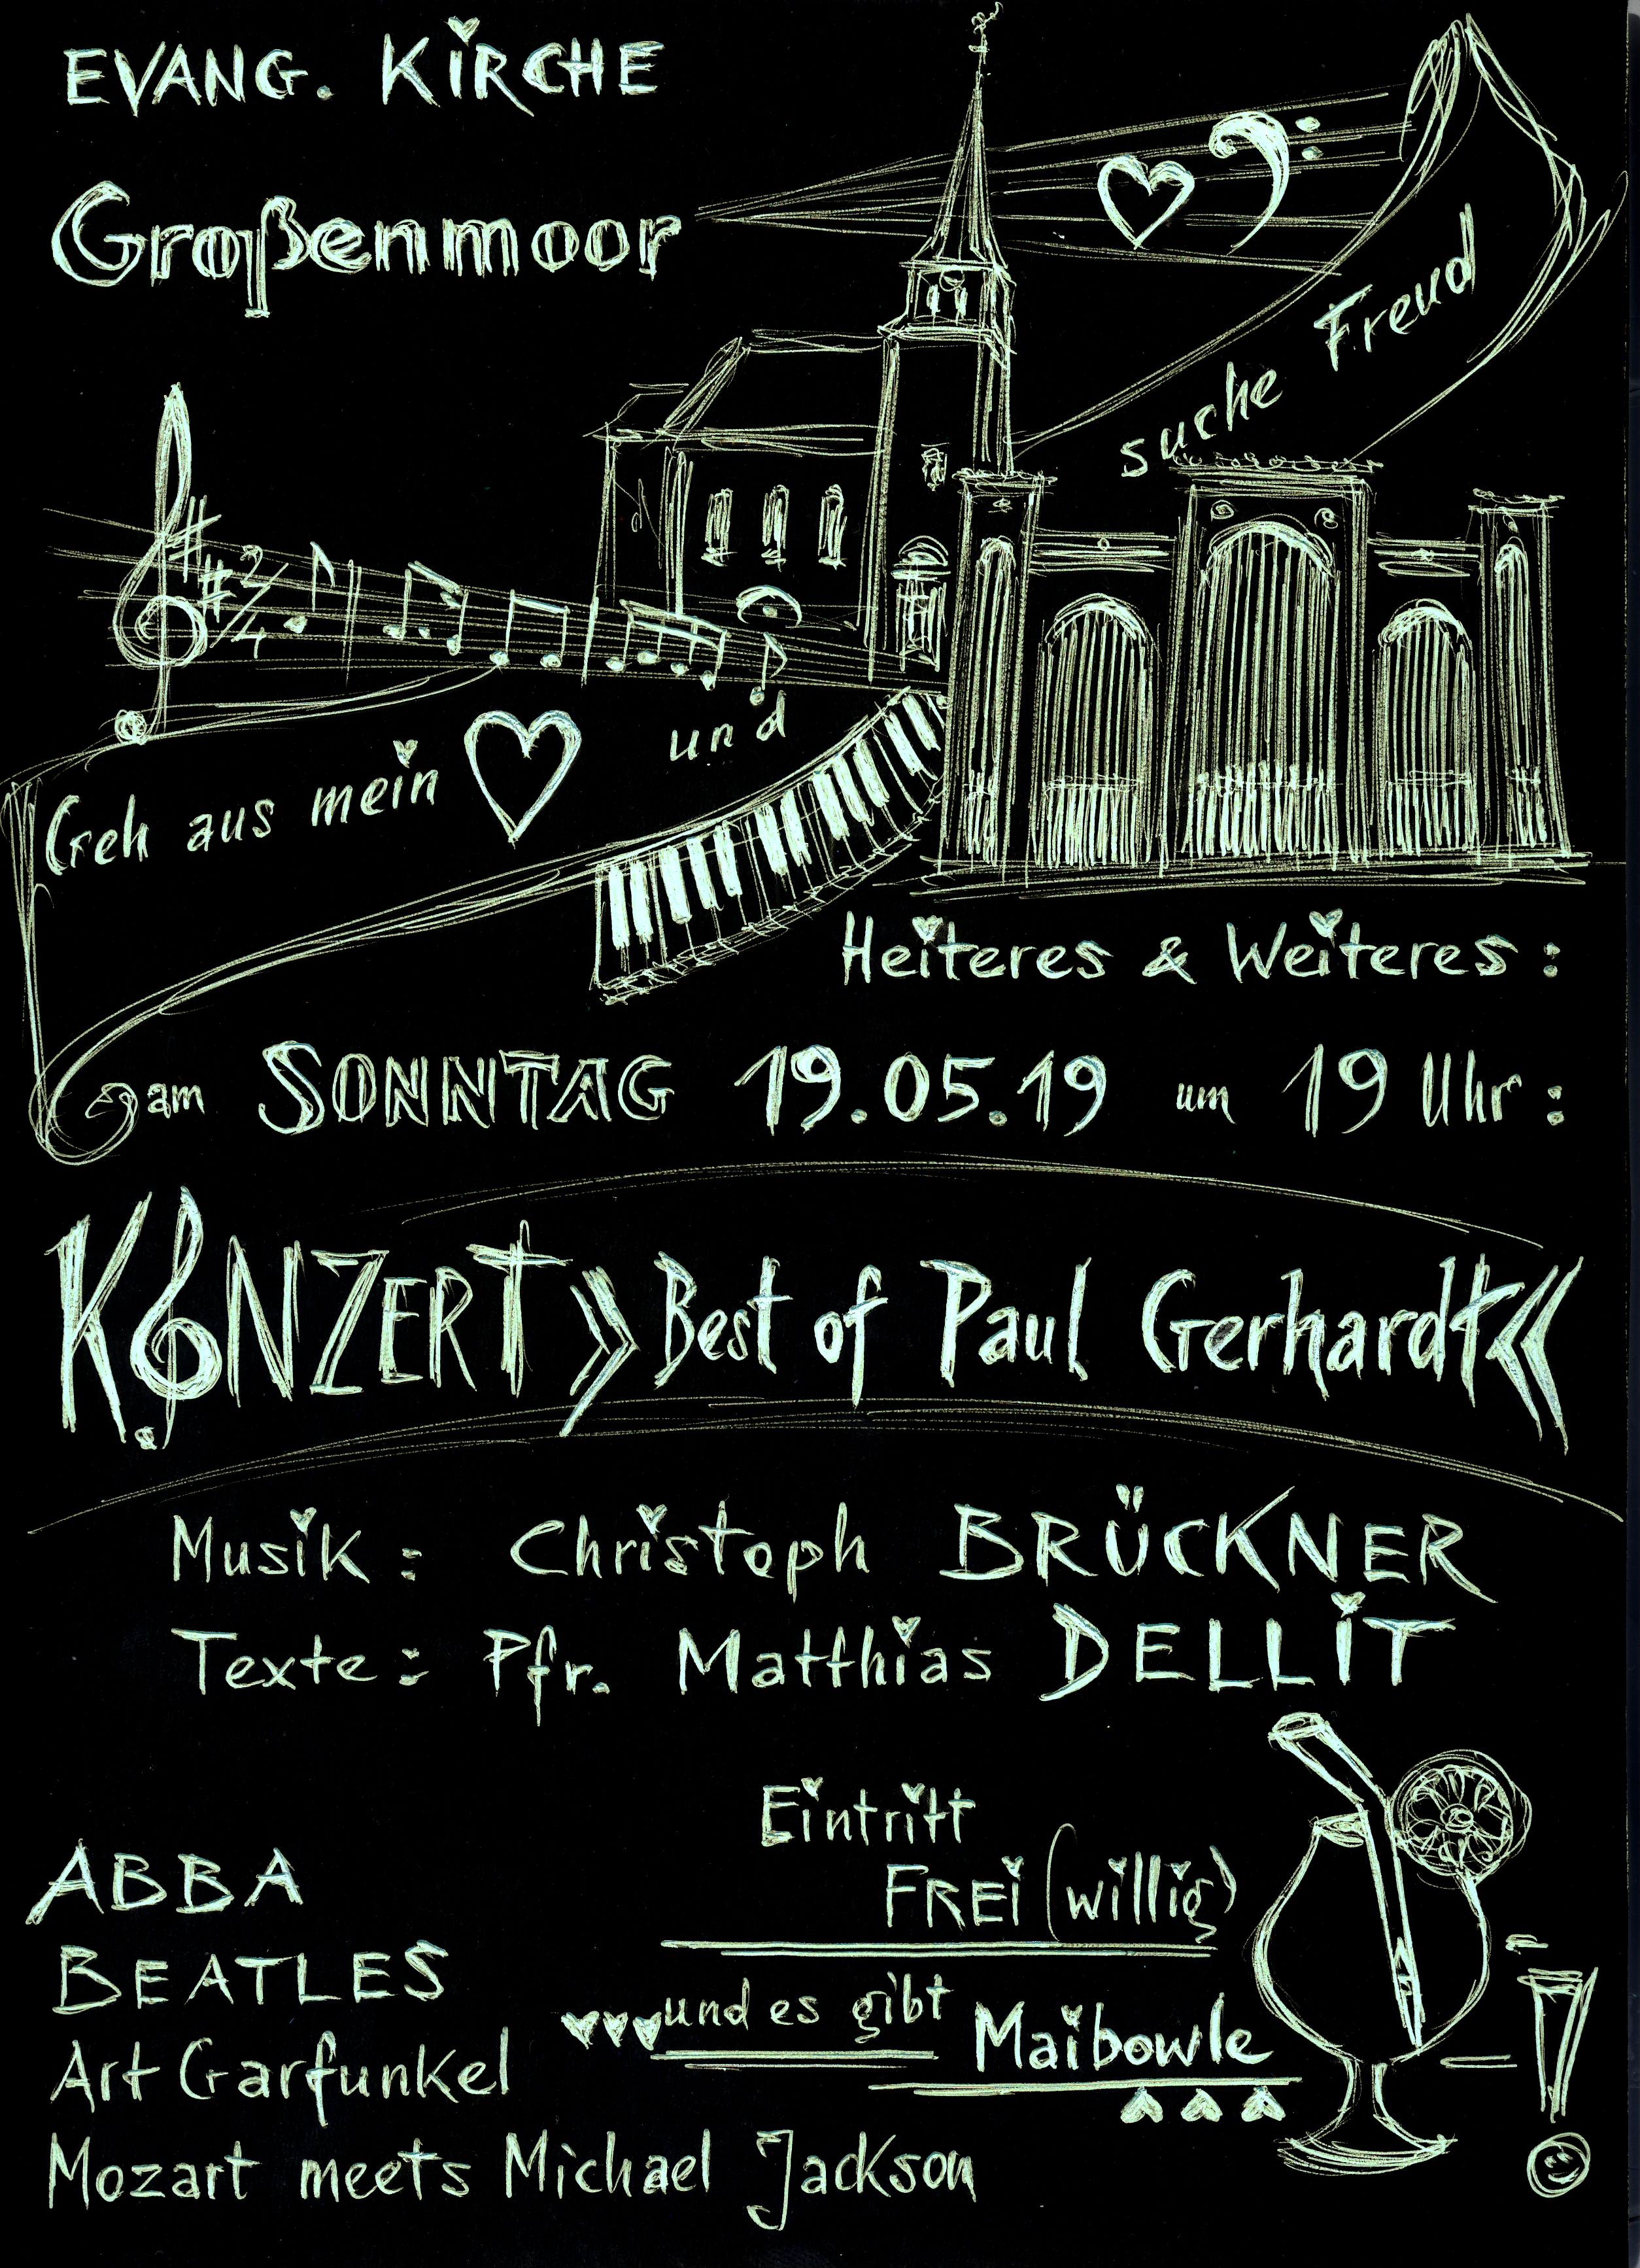 EVANG. KIRCHE
Großenmoor
suche Freud
2/4
Geh aus mein ♡ und
Heiteres & Weiteres:
am SONNTAG 19.05.19 um 19 Uhr:
KONZERT »Best of Paul Gerhardt«
Musik: Christoph BRÜCKNER
Texte: Pfr. Matthias DELLIT
Eintritt
FREI (willig)
und es gibt
Maibowle
ABBA
BEATLES
Art Garfunkel
Mozart meets Michael Jackson